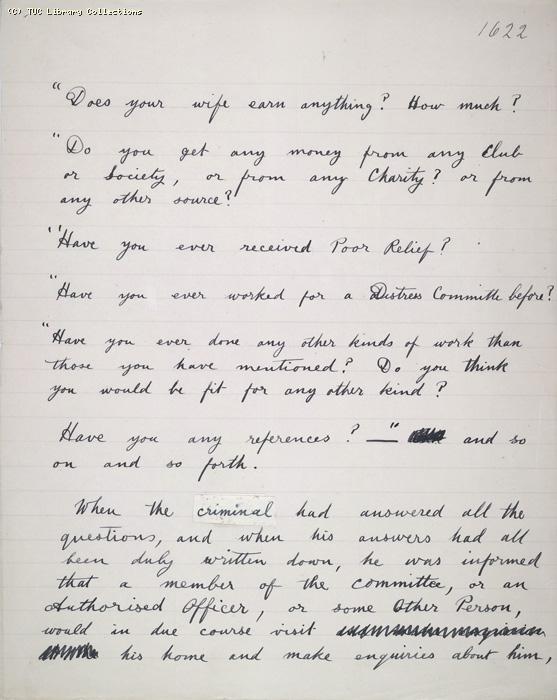 (C) TUC Library Collections
1622
"Does your wife earn anything? How much?
"Do you get any money from any Club
or Society, or from any Charity? or from
any other source?
"Have you ever received Poor Relief?
"Have you ever worked for a Distress Committe before?
"Have you ever done any other kinds of work than
those you have mentioned? Do you think
you would be fit for any other kind?
Have you any references? —" and so
on and so forth.
When the criminal had answered all the
questions, and when his answers had all
been duly written down, he was informed
that a member of the committee, or an
Authorised Officer, or some Other Person,
would in due course visit
his home and make enquiries about him,